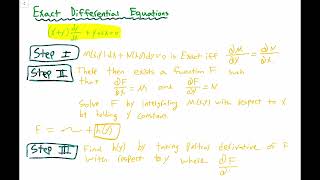 Exact Differential Equations
(x+y) dy/dx + y + 2x = 0
Step I M(x,y)dx + N(x,y)dy = 0 is Exact iff ∂M/∂y = ∂N/∂x
Step II There then exists a function F such
that ∂F/∂x = M and ∂F/∂y = N
Solve F by integrating M(x,y) with respect to x
by holding y constant.
F = + h(y)
Step III Find h(y) by taking partial derivative of F
with respect to y where ∂F/∂